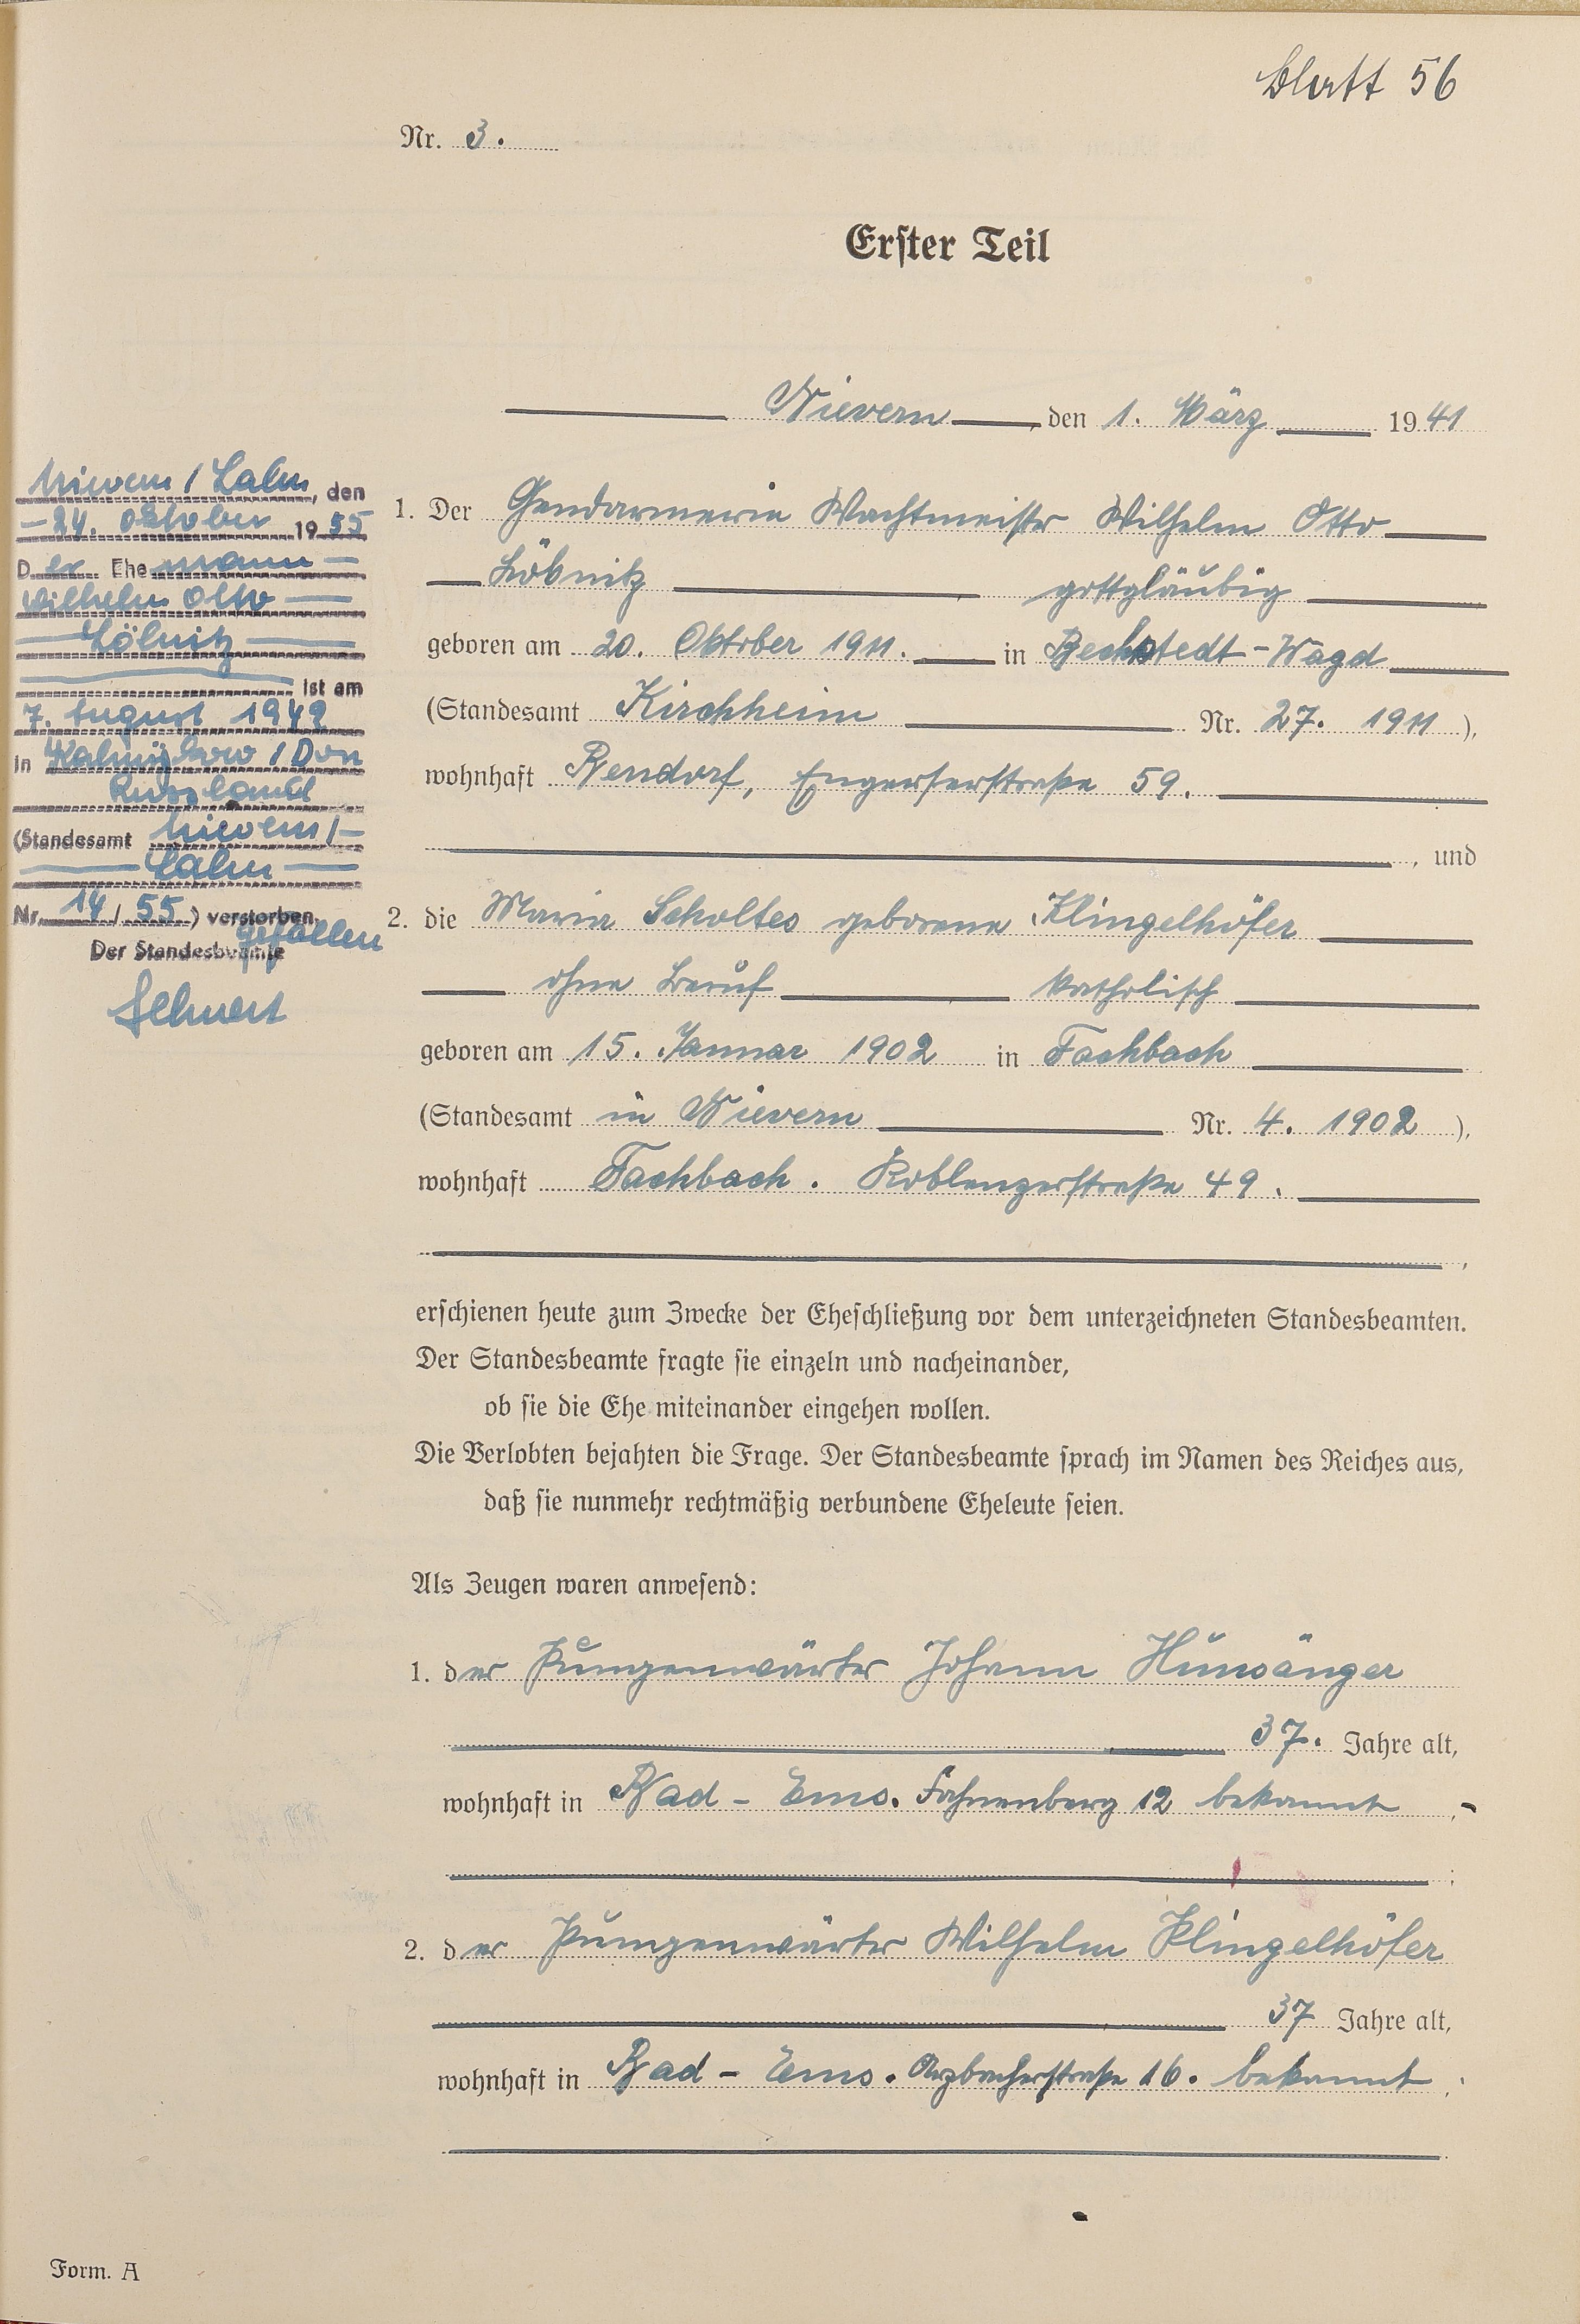 Blatt 56
Nr. 3.
Erster Teil
Nievern, den 1. März 1941
Nievern / Lahn, den
24. Oktober 1955
Der Ehemann
Wilhelm Otto
Löbnitz
ist am
7. August 1942
in / Don
Russland
(Standesamt Nievern /
Lahn
Nr. 14 / 55) verstorben
gefallen
Der Standesbeamte
1. Der Gendarmerie Wachtmeister Wilhelm Otto
Löbnitz gottgläubig
geboren am 20. Oktober 1911. in Bechstedt-Wagd
(Standesamt Kirchheim Nr. 27. 1911),
wohnhaft Bendorf, Engerserstraße 59.
, und
2. die Maria Scholtes geborene Klingelhöfer
ohne Beruf katholisch
geboren am 15. Januar 1902 in Fachbach
(Standesamt in Nievern Nr. 4. 1902),
wohnhaft Fachbach. Koblenzerstraße 49.
erschienen heute zum Zwecke der Eheschließung vor dem unterzeichneten Standesbeamten.
Der Standesbeamte fragte sie einzeln und nacheinander,
ob sie die Ehe miteinander eingehen wollen.
Die Verlobten bejahten die Frage. Der Standesbeamte sprach im Namen des Reiches aus,
daß sie nunmehr rechtmäßig verbundene Eheleute seien.
Als Zeugen waren anwesend:
1. der Johann Hunsänger
37. Jahre alt,
wohnhaft in Bad-Ems. Fahnenberg 12 bekannt
2. der Wilhelm Klingelhöfer
37 Jahre alt,
wohnhaft in Bad-Ems. Arzbacherstraße 16. bekannt
Form. A